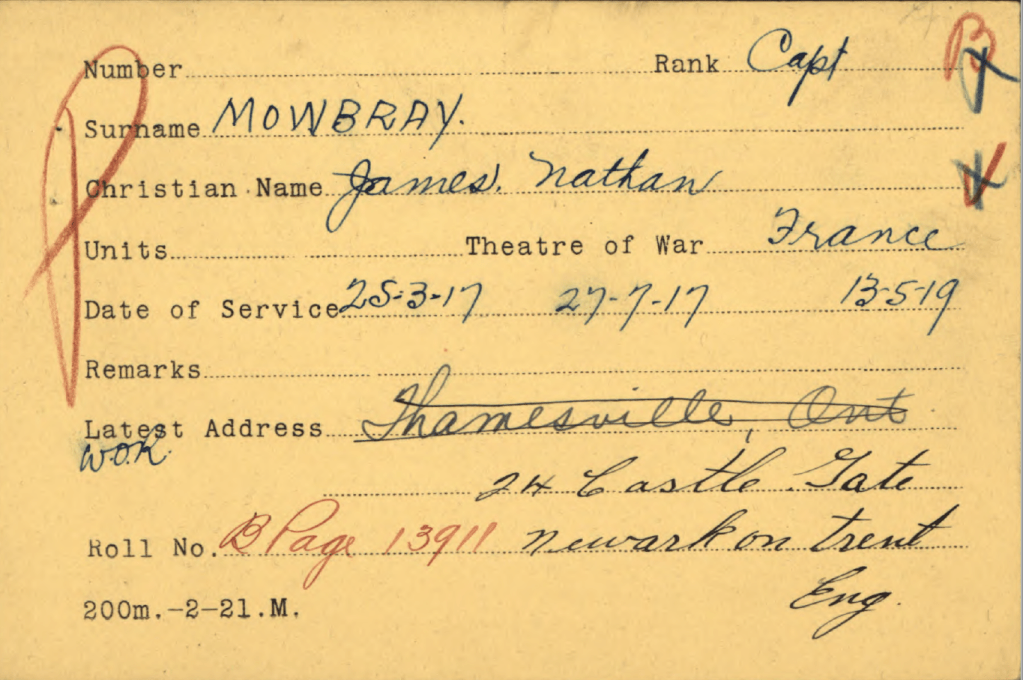 Number Rank Capt B
Surname MOWBRAY.
Christian Name James. Nathan
Units Theatre of War France
Date of Service 25-3-17 27-7-17 13-5-19
Remarks
Latest Address Thamesville, Ont
W.O.R.
24 Castle Gate
Roll No. B Page 13911 Newark on Trent
200m.-2-21.M. Eng.